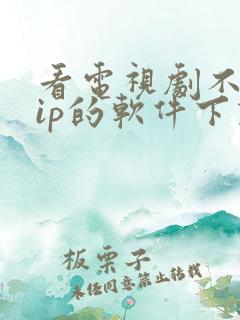 看電視劇不
ip的軟件下
板栗子
未經同意禁止轉載